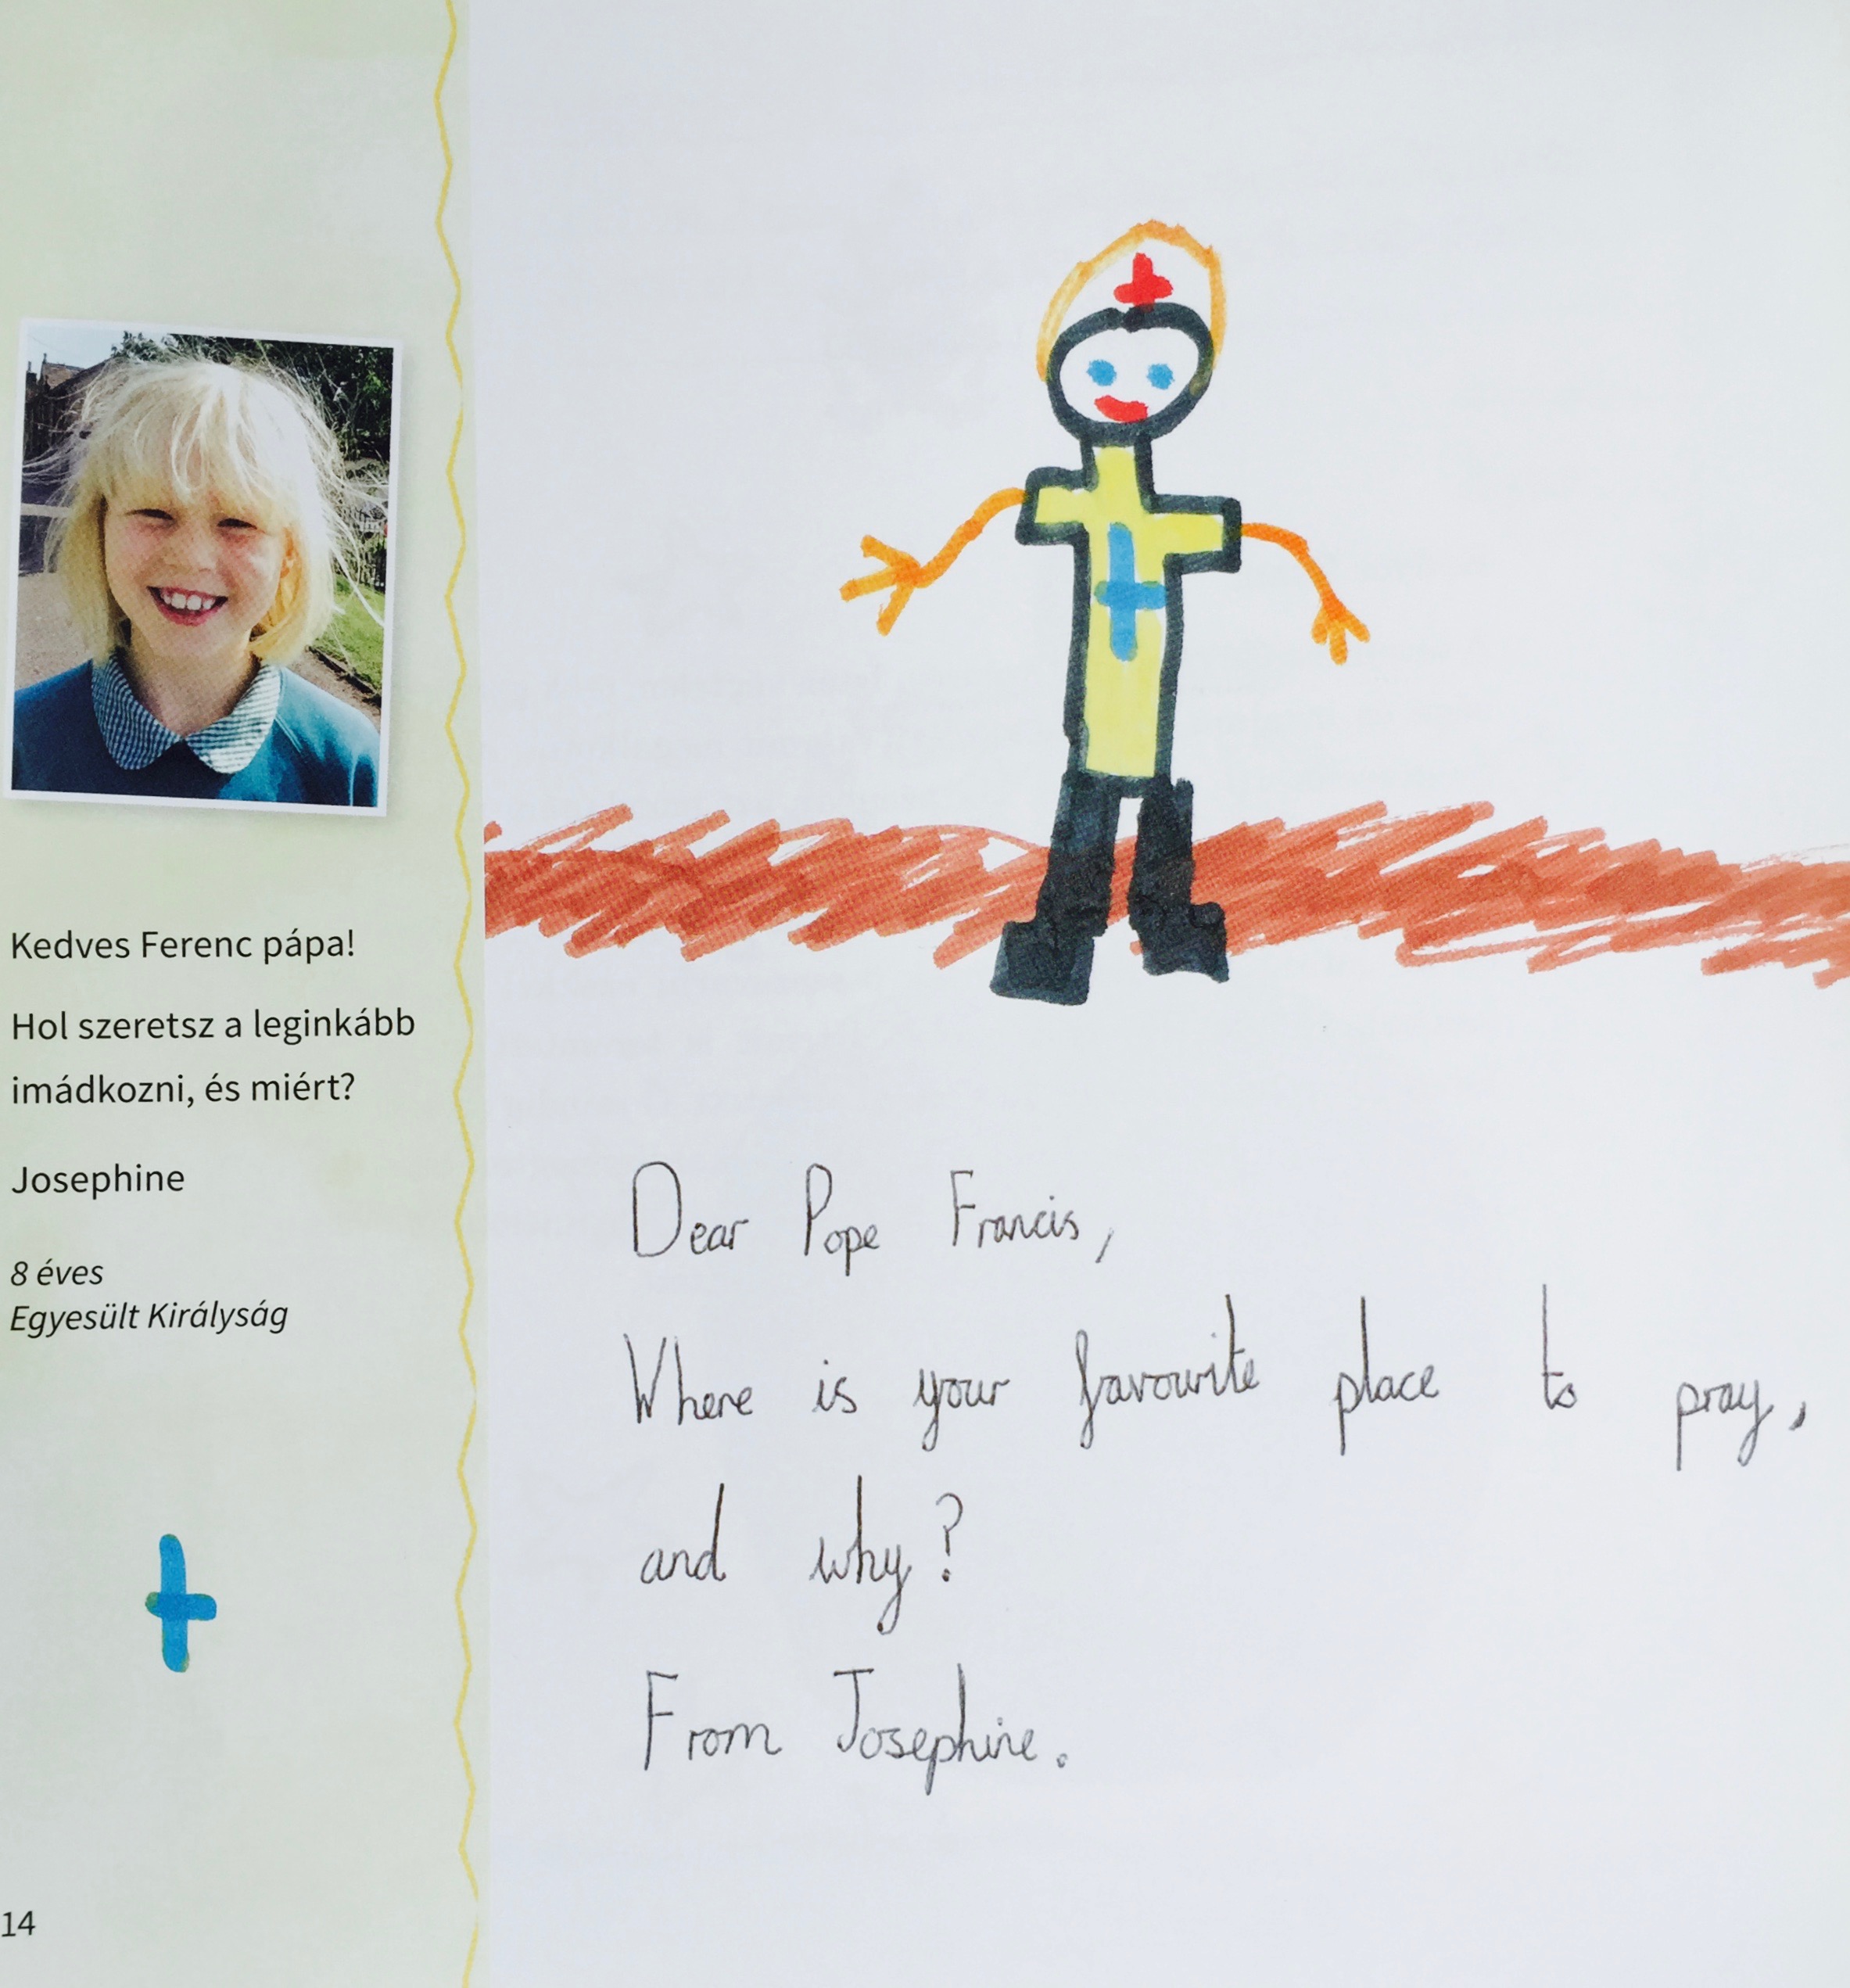 Kedves Ferenc pápa!
Hol szeretsz a leginkább
imádkozni, és miért?
Josephine
8 éves
Egyesült Királyság
14
Dear Pope Francis,
Where is your favourite place to pray,
and why?
From Josephine.